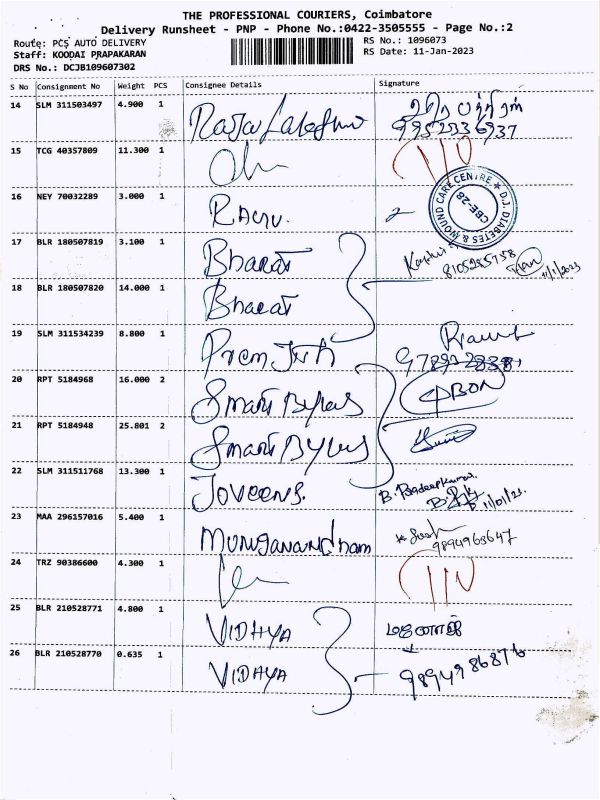 THE PROFESSIONAL COURIERS, Coimbatore
Delivery Runsheet - PNP - Phone No.:0422-3505555 - Page No.:2
Route: PCS AUTO DELIVERY
RS No.: 1096073
Staff: KOODAI PRAPAKARAN
RS Date: 11-Jan-2023
DRS No.: DCJB109607302
S No Consignment No Weight PCS Consignee Details Signature
14 SLM 311503497 4.900 1
15 TCG 40357809 11.300 1
16 NEY 70032289 3.000 1 RAGHU.
D.J. DIABETES & WOUND CARE CENTRE
CBE-28
17 BLR 180507819 3.100 1 Bharat
18 BLR 180507820 14.000 1 Bharat
19 SLM 311534239 8.800 1
20 RPT 5184968 16.000 2 Smart Bytes
21 RPT 5184948 25.801 2 Smart Bytes
22 SLM 311511768 13.300 1 B. Pradeepkumar
11/01/23
23 MAA 296157016 5.400 1 Muruganandham
9894963647
24 TRZ 90386600 4.300 1
25 BLR 210528771 4.800 1 VIDHYA மனோஜ்
26 BLR 210528770 0.635 1 VIDHYA 9894986876